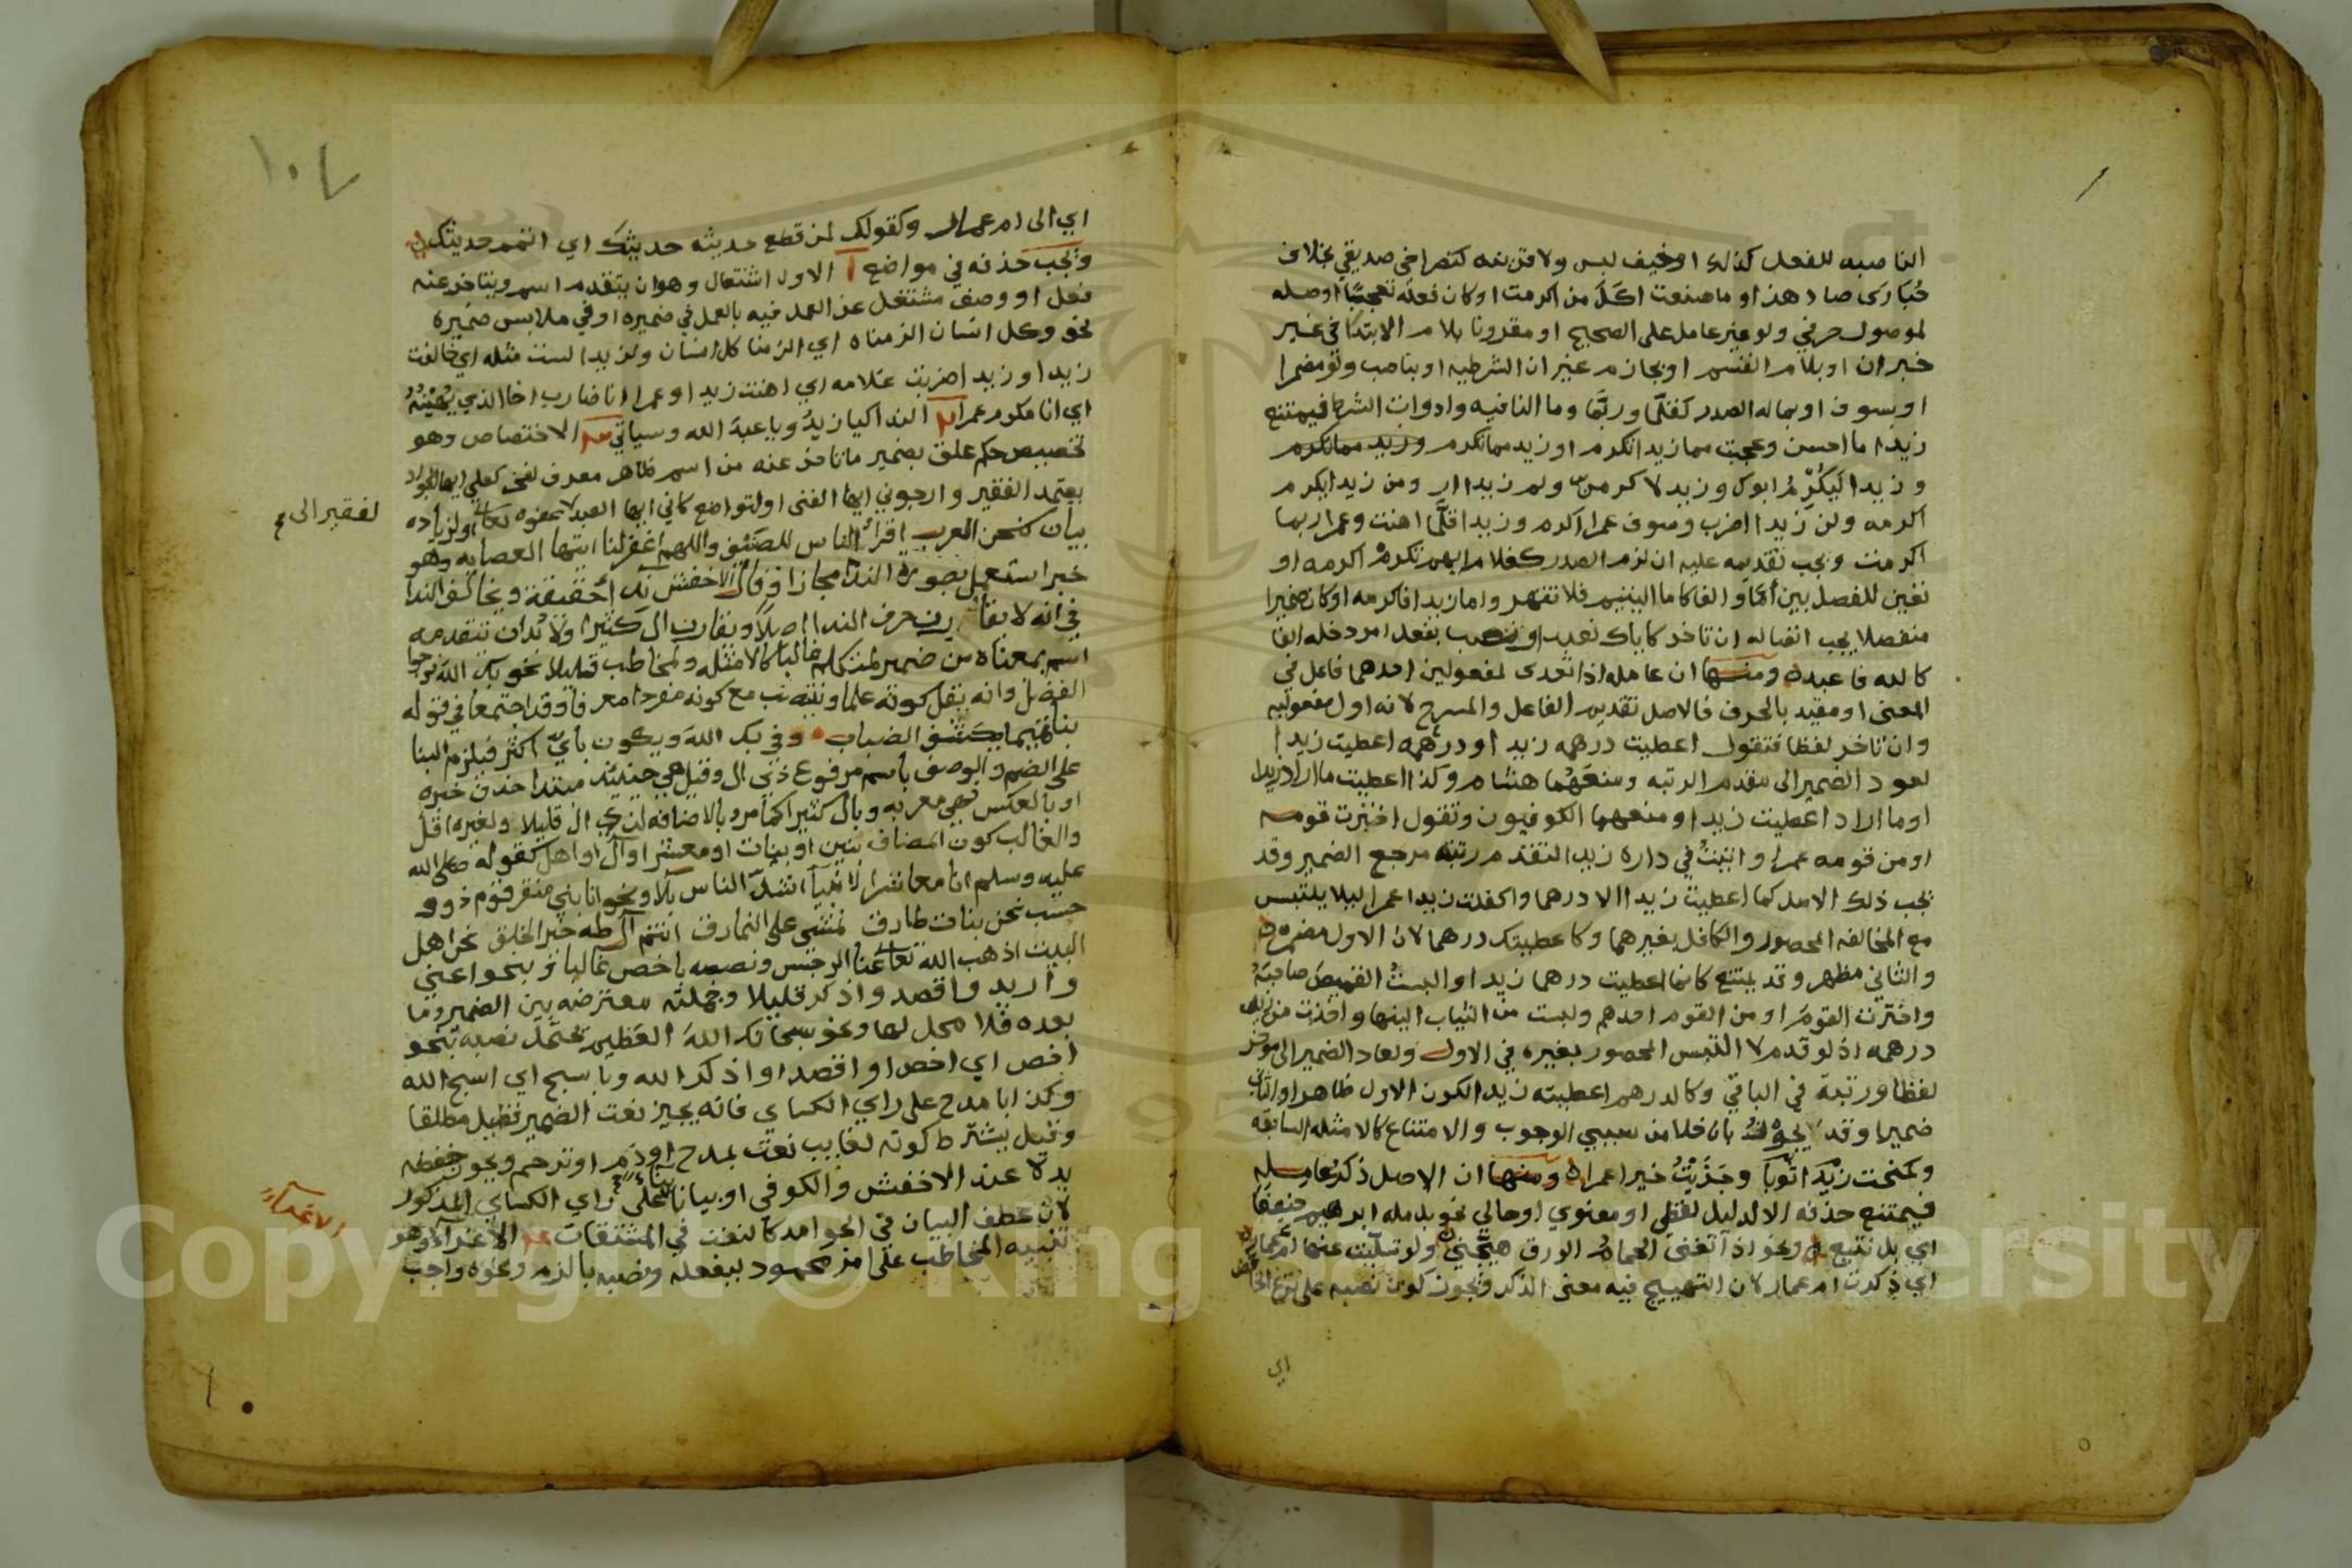 الناصبه للفعل كذلك او خيف لبس ولا قرينه كضرا في صديقي بخلاف
حُبَارَى صاد هذا او ما صنعت اكَلَ من اكرمت او كان فعله تعجبيًا اوصله
لموصول حرفي ولو غير عامل على الصحيح او مقرونا بلام الابتدا في غير
خبر ان او بلام القسم او بجازم غير ان الشرطيه او بناصب ولو مضمرا
او بسوف او بما له الصدر كقلّما وربّما وما النافيه وادوات الشرط فيمتنع
زيدا ما احسن وعجبت مما زيدا تكرم او زيد مما تكرم
وزيدا ليُكْرِمُ ابوك وزيد لاكرمنّ ولم زيدا ار ومن زيدا يكرم
اكرمه ولن زيدا اضرب وسوف عمرا اكرم وزيدا قلَّما اهنت وعمرا ربما
اكرمت ويجب تقديمه عليه ان لزم الصدر كغلام ايهم تكرم اكرمه او
تعين للفصل بين أمّا والفا كاما اليتيم فلا تقهر واما زيدا فاكرمه او كان ضميرا
منفصلا يجب اتصاله ان تاخر كاياك نعبد او نصب بفعل امر دخله الفا
كالله فاعبد ومنها ان عامله اذا تعدى لمفعولين احدهما فاعل في
المعنى او مقيد بالحرف فالاصل تقديم الفاعل والمسرح لانه اول مفعوليه
وان تاخر لفظا فتقول اعطيت درهمه زيد او درهمه اعطيت زيدا
لعود الضمير الى مقدم الرتبه ومنعَهُما هشام وكذا اعطيت ما اراد زيدا
او ما اراد اعطيت زيدا ومنعهما الكوفيون وتقول اخترت قومه
او من قومه عمرا واتيتُ في داره زيدا لتقدم رتبة مرجع الضمير وقد
يجب ذلك الاصل كما اعطيت زيدا الا درهما واكفلت زيدا عمرا ليلا يلتبس
مع المخالفه المحصور والكافل بغيرهما وكاعطيتك درهما لان الاول مضمر
والثاني مظهر وقد يمتنع كانما اعطيت درهما زيدا او البستُ القميصَ صاحبَهُ
واخترت القومَ او من القوم احدهم ولبست من الثياب الينها واخذت من زيد
درهمه اذ لو قدم لا التبس المحصور بغيره في الاول ولعاد الضمير الى موخر
لفظا ورتبة في الباقي وكالدرهم اعطيته زيدا لكون الاول ظاهرا والثاني
ضميرا وقد يجوزُ بان خلا من سببي الوجوب والامتناع كالامثله السابقه
وكمنحت زيدًا ثوبًا وجَزَيْتُ خيرا عمرا ومنها ان الاصل ذكر عامله
فيمتنع حذفه الا لدليل لفظي او معنوي او حالي نحو بل مله ابرهيم حنيفا
اي بل نتبع ونحو اذا تغنى الحمامُ الورق هيّجني ولو تسلّيت عنها ام عمار
اي ذكرت ام عمار لان التهييج فيه معنى الذكر ويجوز كون نصبه على نزع الخافض
اي
١٠٧
اي الى ام عمار وكقولك لمن قطع حديثه حديثك اي اتمم حديثك
ويجب حذفه في مواضع الاول اشتغال وهو ان يتقدم اسم ويتاخر عنه
فعل او وصف مشتغل عن العمل فيه بالعمل في ضميره او في ملابس ضميره
نحو وكل انسان الزمناه اي الزمنا كل انسان ولزيدا لست مثله اي خالفت
زيدا او زيدا ضربت غلامه اي اهنت زيدا او عمرا انا ضارب اخا الذي يُهينُهُ
اي انا مكرم عمرا الندا كيا زيدُ ويا عبدَ الله وسياتي الاختصاص وهو
تخصيص حكم علق بضمير ما تاخر عنه من اسم ظاهر معرف لفخر كعلي ايها الجواد
يعتمد الفقير وارجوني ايها الفتى او لتواضع كاني ايها العبد لا عفوه تعالى او لزياده
لفقير الى
بيان كنحن العرب اقرأ الناس للضيف واللهم اغفر لنا ايتها العصابه وهو
خبر استعمل بصورة الندا مجازا وقال الاخفش ندا حقيقة ويخالف الندا
في انه لا يقارن حرف الندا اصلا ويقارن ال كثيرا ولا بد ان تتقدمه
اسم بمعناه من ضمير لمتكلم غالبا كالامثله ولمخاطب قليلا نحو بك الله نرجوا
الفضل وانه يقل كونه علما وينتصب مع كونه مفردا معرفا وقد اجتمعا في قوله
بنا تميما يكشف الضباب وفي بك الله ويكون بايّ اكثر فيلزم البنا
على الضم والوصف باسم مرفوع ذي ال وقيل هي حينئذ مبتدا حذف خبره
او بالعكس فهي معربه وبال كثيرا كما مر وبالاضافه لذي ال قليلا ولغيره اقل
والغالب كون المضاف بنين او بنات او معشر او آل او اهل كقوله صلى الله
عليه وسلم انا معاشر الانبيا اشدّ الناس بلا ونحو انا بني منقر قوم ذوو
حسَب نحن بنات طارق نمشي على النمارق انتم آل طه خير الخلق نحن اهل
البيت اذهب الله تعالى عنا الرجس ونصبه باخص غالبا وبنحو اعني
واريد واقصد واذكر قليلا وجملته معترضه بين الضمير وما
بعده فلا محل لها ونحو سبحانك اللهَ العظيم يحتمل نصبه بنحو
اخص اي اخص او اقصد او اذكر الله وبا سبح اي اسبح الله
وكذا بامدح على راي الكساي فانه يجيز نعت الضمير فقيل مطلقا
وقيل بشترط كونه لغايب نعت بمدح او ذم او ترحم ويجوز خفضه
بدلا عند الاخفش والكوفي او بيانا على راي الكساي المذكور
لان عطف البيان في الجوامد كالنعت في المشتقات الاغرآ وهو
الاغرآ
تنبيه المخاطب على امر محمود ليفعله ونصبه بالزم ونحوه واجب
Copyright © King Saud University